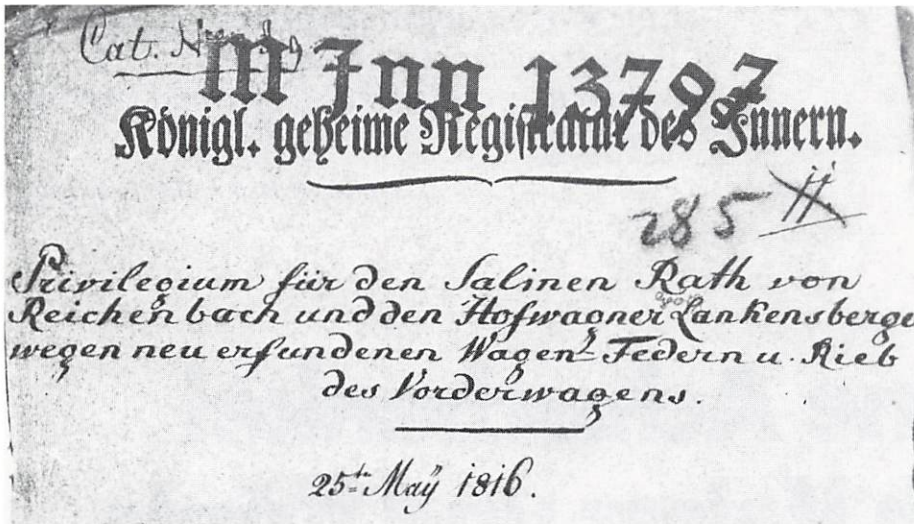 Cat. N
M Inn 13797
Königl. geheime Registratur des Innern.
285 II.
Privilegium für den Salinen Rath von
Reichenbach und den Hofwagner Lankensberge
wegen neu erfundenen Wagen-Federn u. Rieb
des Vorderwagens.
25te May 1816.